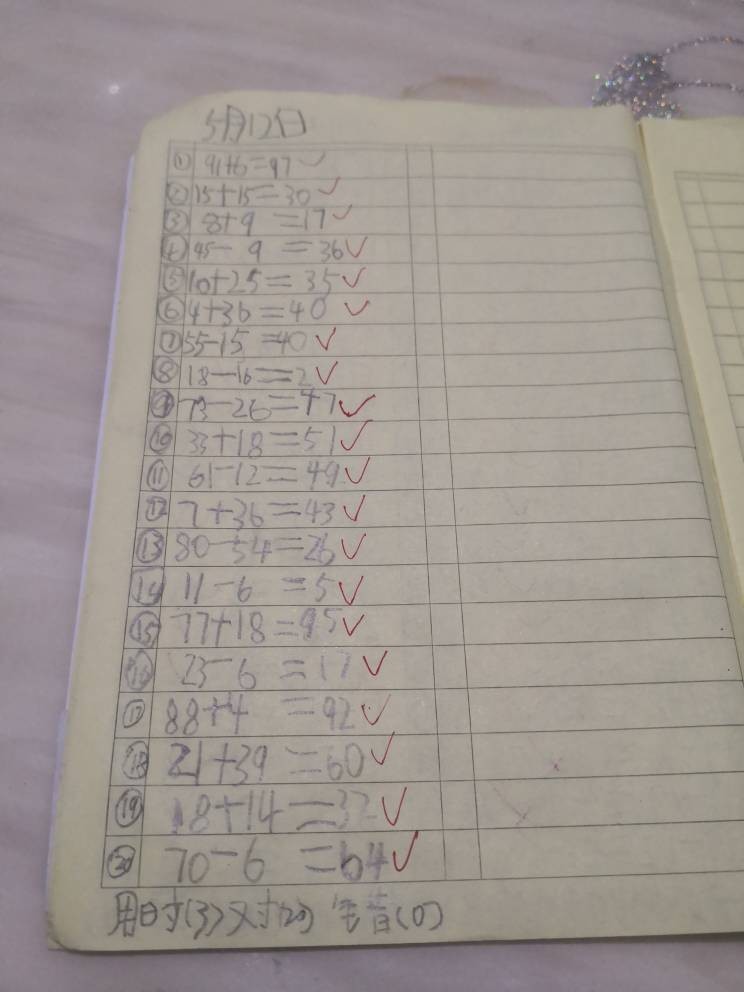 5月12日
① 91+6=97 ✓
② 15+15=30 ✓
③ 8+9=17 ✓
④ 45-9=36 ✓
⑤ 10+25=35 ✓
⑥ 4+36=40 ✓
⑦ 55-15=40 ✓
⑧ 18-16=2 ✓
⑨ 73-26=47 ✓
⑩ 33+18=51 ✓
⑪ 61-12=49 ✓
⑫ 7+36=43 ✓
⑬ 80-54=26 ✓
⑭ 11-6=5 ✓
⑮ 77+18=95 ✓
⑯ 23-6=17 ✓
⑰ 88+4=92 ✓
⑱ 21+39=60 ✓
⑲ 18+14=32 ✓
⑳ 70-6=64 ✓
用时(3)对(20) 错(0)